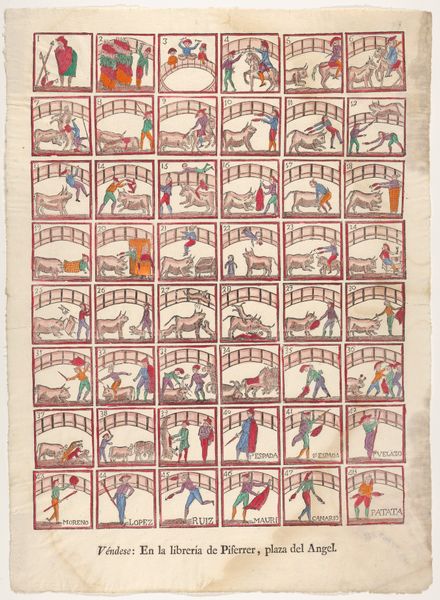 2 3 4 5 6
7 8 9 10 11 12
14 15 16 17 18
19 20 21 22 23 24
25 26 27 28 29 30
31 32 33 34 35 36
37 38 39 40 41
ESPADA ESPADA VELAZO
45 46 47
MORENO LOPEZ RUIZ MAURI CAMARIO PATATA
Véndese: En la librería de Piferrer, plaza del Angel.